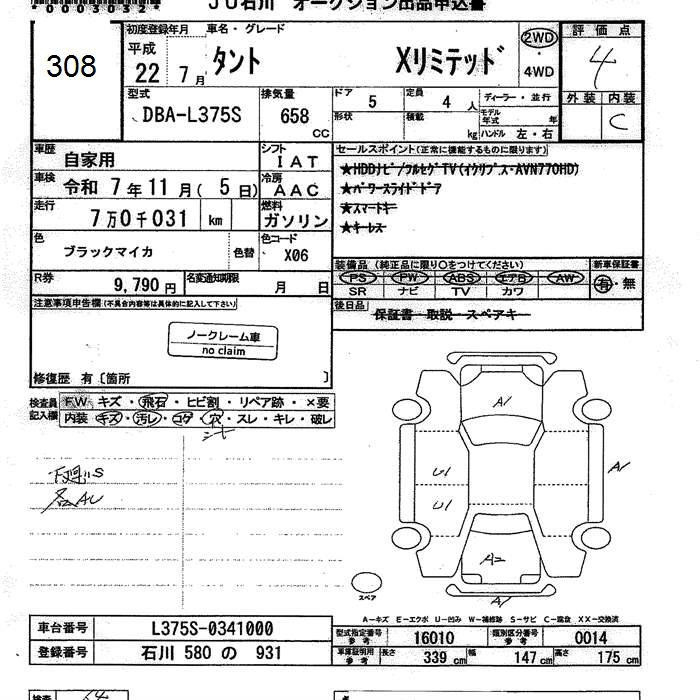 *0003032*
JU石川 オークション出品申込書
308
初度登録年月
平成
22 7月
車名・グレード
タント Xリミテッド
2WD
・
4WD
評価点
4
外装 内装
C
型式
DBA-L375S
排気量
658
CC
ドア
5
定員
4 人
形状
積載
kg
ディーラー・並行
モデル年式 年
ハンドル 左・右
車歴
自家用
シフト
IAT
車検
令和 7年11月( 5日)
冷房
AAC
走行
7万0千031 km
燃料
ガソリン
色
ブラックマイカ
色替
色コード
X06
R券
9,790円
名変通知期限
月 日
セールスポイント(正常に機能するものに限ります)
★HDDナビ/フルセグTV(イクリプス・AVN770HD)
★パワースライドドア
★スマートキー
★キーレス
装備品 (純正品に限り○をつけてください)
PS PW ABS エアB AW
SR ナビ TV カワ
新車保証書
有・無
後日品
保証書・取説・スペアキー
注意事項申告欄(不具合内容等は具体的に記入して下さい)
ノークレーム車
no claim
修復歴 有〔箇所 〕
検査員記入欄
FW キズ・飛石・ヒビ割・リペア跡・×要
内装 キズ・汚レ・コゲ・穴・スレ・キレ・破レ
シート
下廻りS
各AU
A1
U1
U1
A1
A2
A1
スペア
A-キズ E-エクボ U-凹み W-補修跡 S-サビ C-腐食 XX-交換済
車台番号
L375S-0341000
登録番号
石川 580 の 931
型式指定番号
参考
16010
類別区分番号
参考
0014
車庫証明用
参考
長さ 339 cm
幅 147 cm
高さ 175 cm